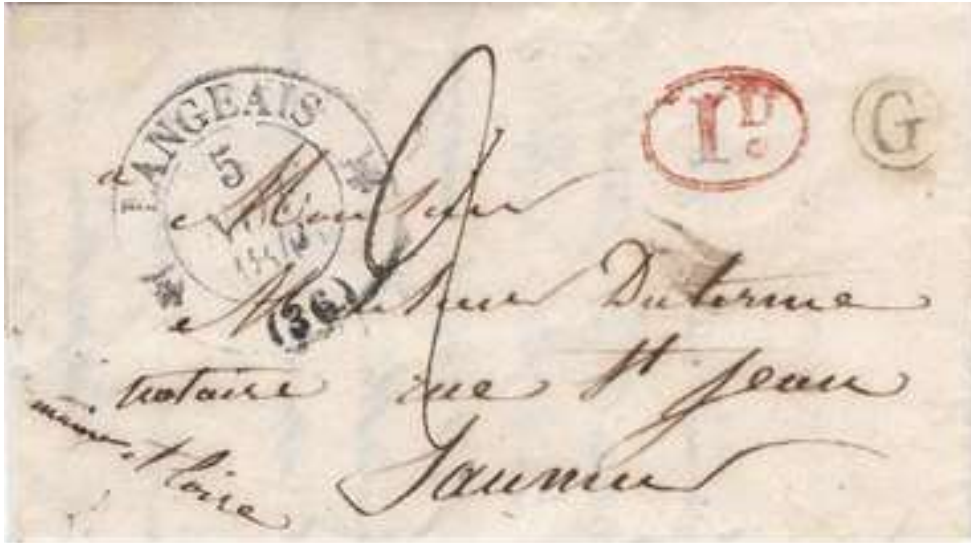 LANGEAIS
5
(36)
1D
c
G
a
Monsieur
Monsieur Duterme
notaire rue St Jean
Saumur
maine et loire
2